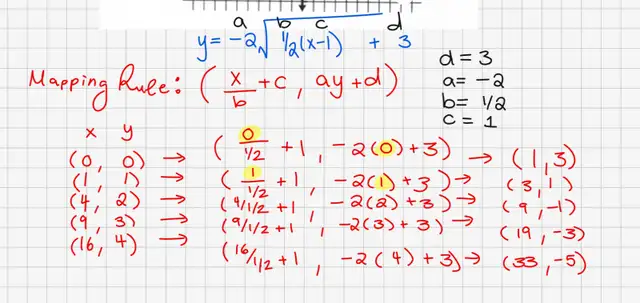 a b c d
y = -2√1/2(x-1) + 3
d = 3
Mapping Rule: (x/b + c, ay + d)
a = -2
b = 1/2
c = 1
x y
(0, 0) → (0/1/2 + 1, -2(0) + 3) → (1, 3)
(1, 1) → (1/1/2 + 1, -2(1) + 3) → (3, 1)
(4, 2) → (4/1/2 + 1, -2(2) + 3) → (9, -1)
(9, 3) → (9/1/2 + 1, -2(3) + 3) → (19, -3)
(16, 4) → (16/1/2 + 1, -2(4) + 3) → (33, -5)